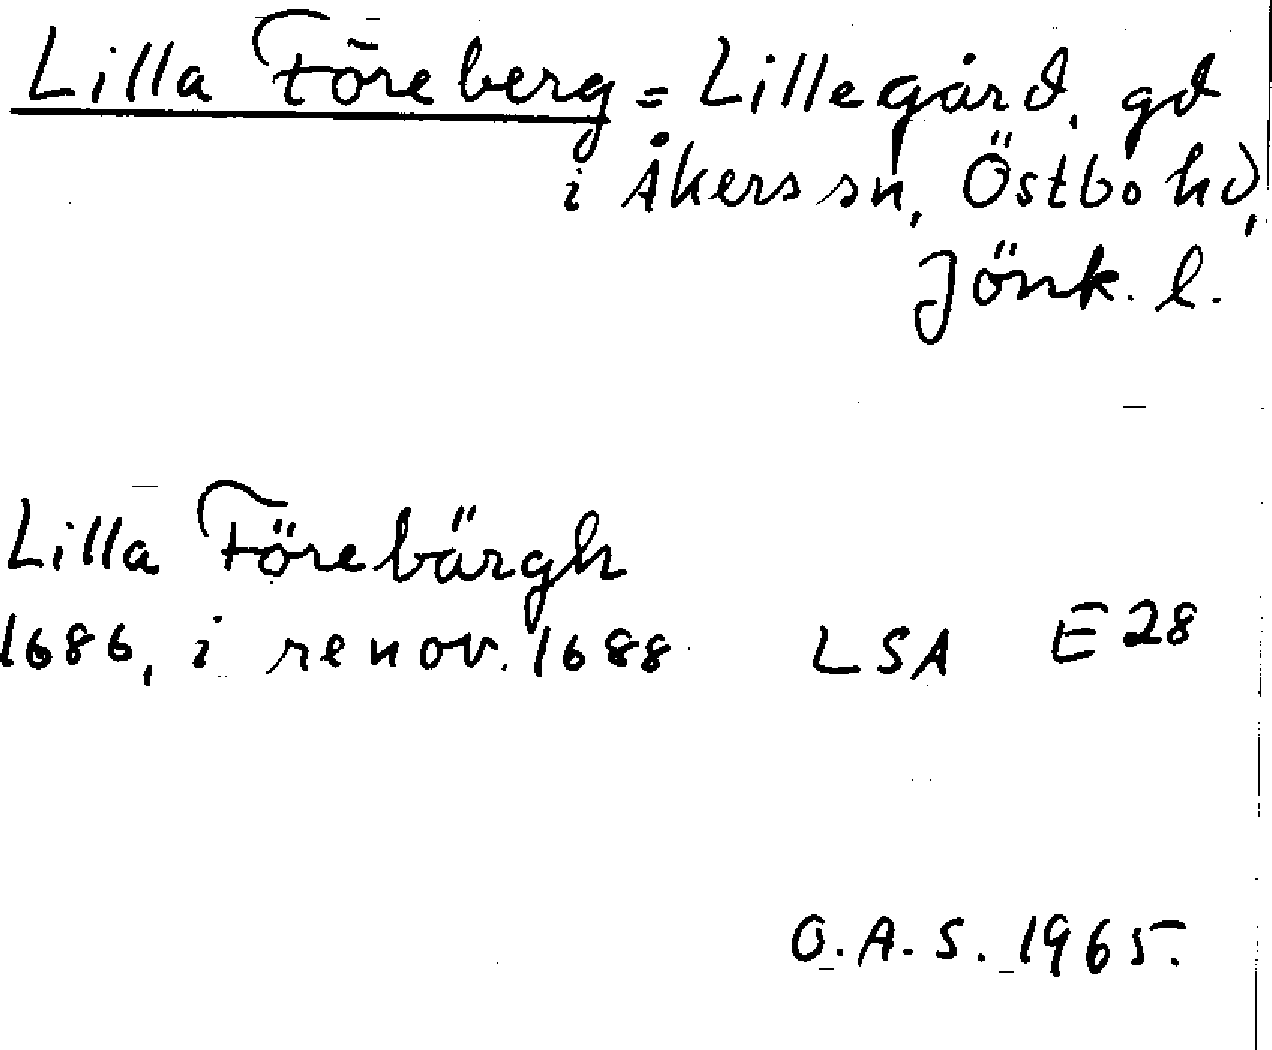 Lilla Föreberg = Lillegård, gd
i Åkers sn, Östbo hd,
Jönk. l.
Lilla Förebärgh
1686, i renov. 1688 LSA E28
O.A.S. 1965.